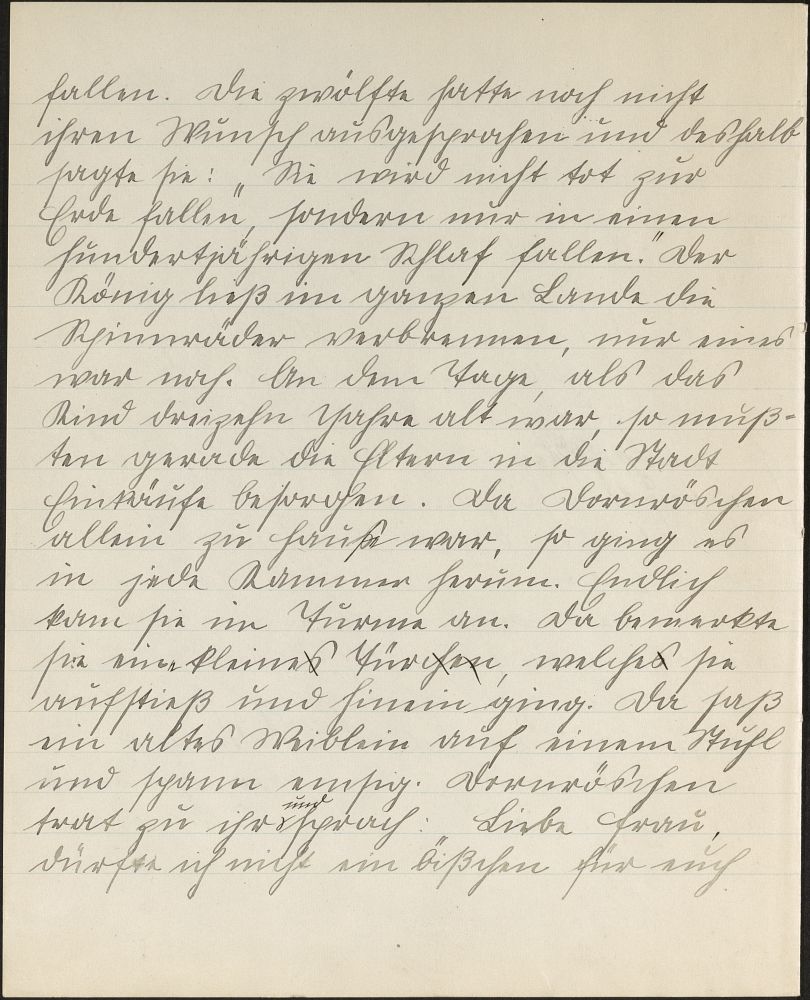 fallen. Die zwölfte hatte noch nicht
ihren Wunsch ausgesprochen und deshalb
sagte sie: „Sie wird nicht tot zur
Erde fallen, sondern nur in einen
hundertjährigen Schlaf fallen." Der
König ließ im ganzen Lande die
Spinnräder verbrennen, nur eines
war noch. An dem Tage, als das
Kind dreizehn Jahre alt war, so muß-
ten gerade die Eltern in die Stadt
Einkäufe besorgen. Da Dornröschen
allein zu Hause war, so ging es
in jede Kammer herum. Endlich
kam sie im Turme an. Da bemerkte
sie eine kleines Türchen, welches sie
aufstieß und hinein ging. Da saß
ein altes Weiblein auf einem Stuhl
und spann emsig. Dornröschen
trat zu ihr und sprach: Liebe Frau,
dürfte ich nicht ein bißchen für euch